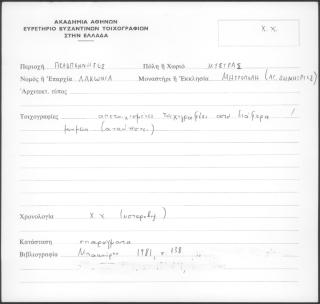 ΑΚΑΔΗΜΙΑ ΑΘΗΝΩΝ
ΕΥΡΕΤΗΡΙΟ ΒΥΖΑΝΤΙΝΩΝ ΤΟΙΧΟΓΡΑΦΙΩΝ
ΣΤΗΝ ΕΛΛΑΔΑ
Χ.Χ.
Περιοχή ΠΕΛΟΠΟΝΝΗΣΟΣ Πόλη ή Χωριό ΜΥΣΤΡΑΣ
Νομός ή Ἐπαρχία ΛΑΚΩΝΙΑ Μοναστήρι ή Ἐκκλησία ΜΗΤΡΟΠΟΛΗ (ΑΓ. ΔΗΜΗΤΡΙΟΣ)
Ἀρχιτεκτ. τύπος
Τοιχογραφίες αποτοιχισμένες τοιχογραφίες από διάφορα
Χρονολογία Χ.Χ. (υστεροβυζ.)
Κατάσταση σπαράγματα
Βιβλιογραφία 1981, 138